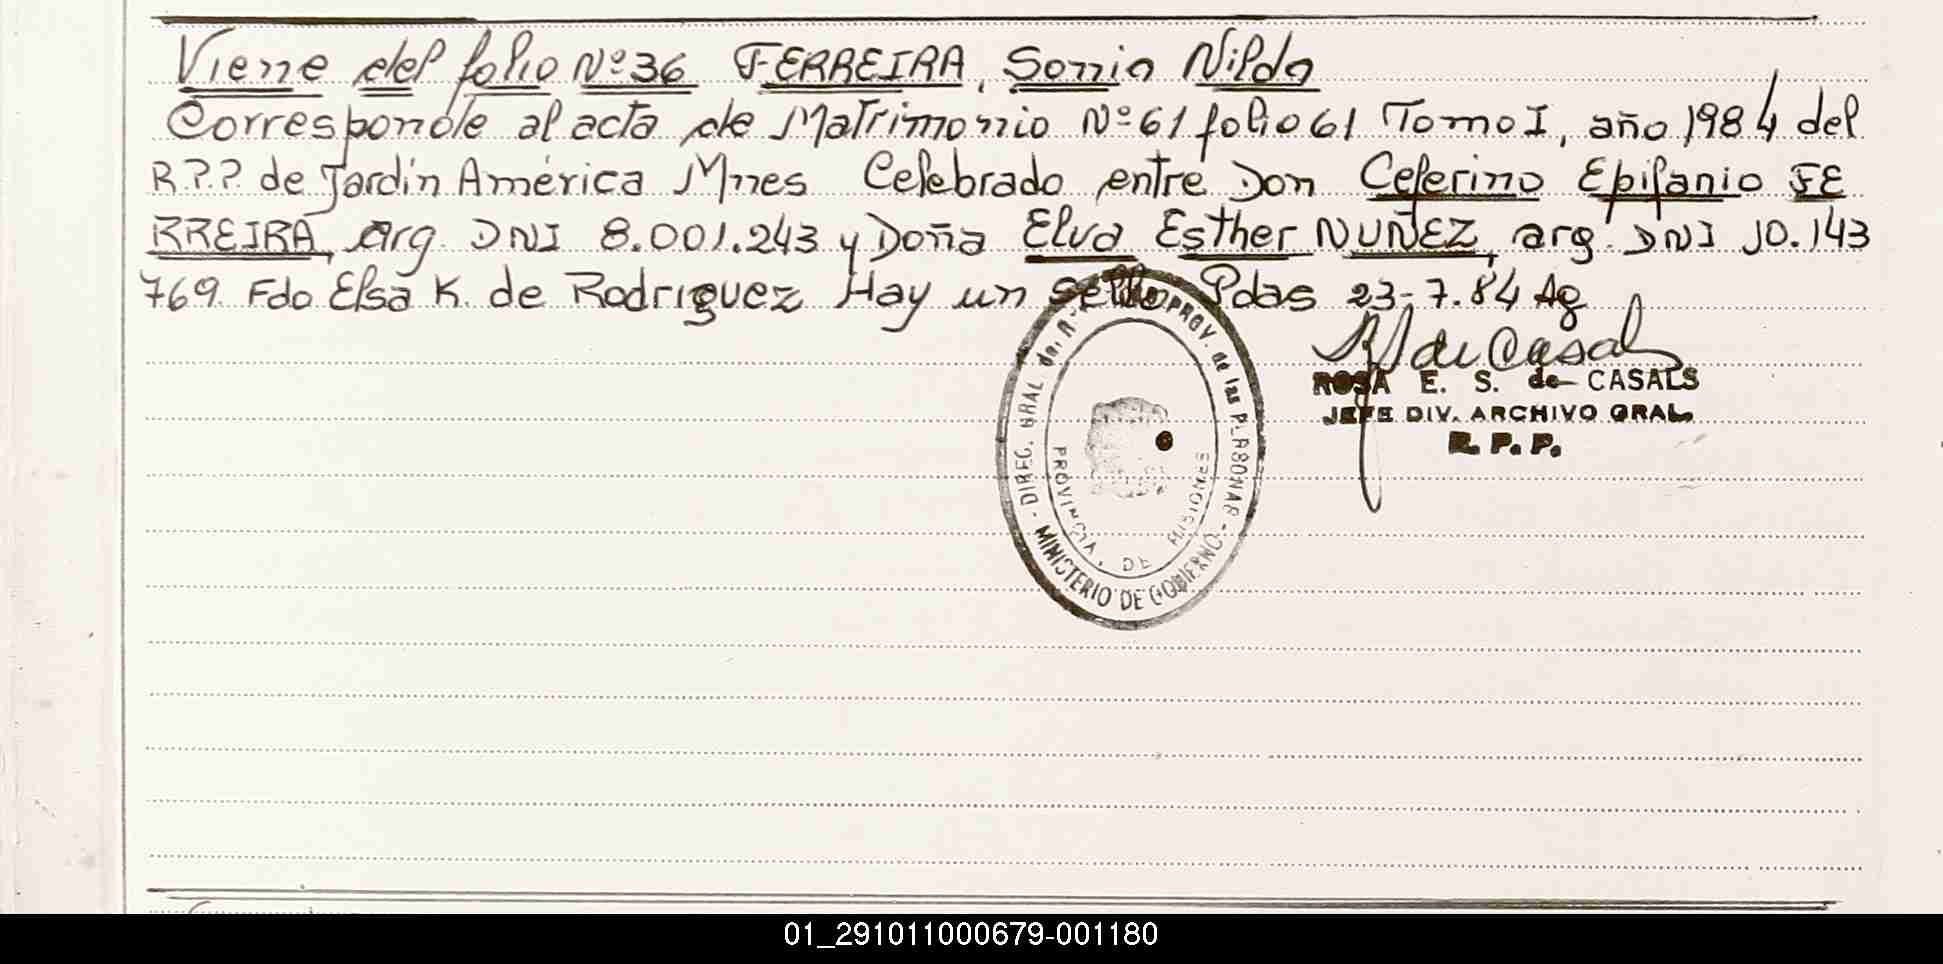 Viene del folio Nº 36 FERREIRA, Sonia Nilda
Corresponde al acta de Matrimonio Nº 61 folio 61 Tomo I, año 1984 del
R.P.P. de Jardín América Mnes Celebrado entre Don Ceferino Epifanio FE
RREIRA, Arg. DNI 8.001.243 y Doña Elva Esther NUÑEZ, arg. DNI 10.143
769 Fdo Elsa K. de Rodriguez Hay un sello Pdas 23-7-84 Ag
de Casals
ROSA E. S. de CASALS
JEFE DIV. ARCHIVO GRAL.
R. P. P.
DIREC. GRAL del R. PROV. de las PERSONAS
MINISTERIO DE GOBIERNO
PROVINCIA DE MISIONES
01_291011000679-001180